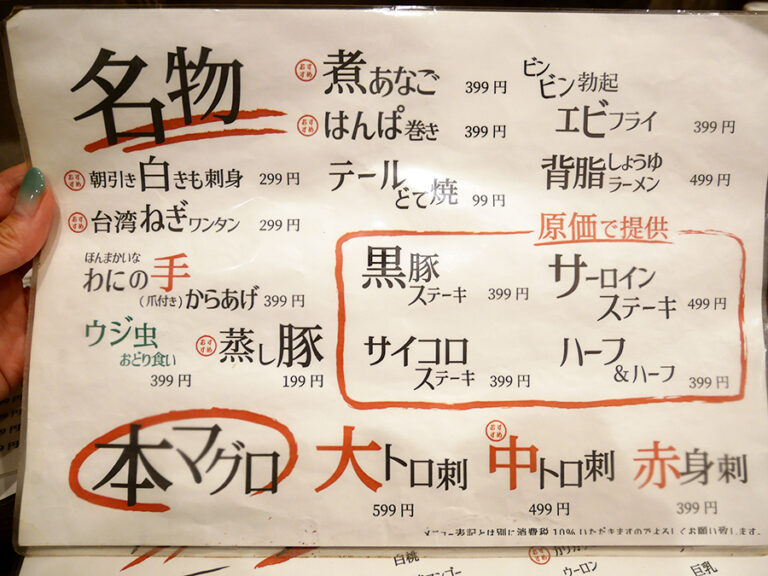 名物
おすすめ 煮あなご 399円
おすすめ はんぱ巻き 399円
ビンビン勃起
エビフライ 399円
おすすめ 朝引き白きも刺身 299円
テールどて焼 99円
背脂しょうゆラーメン 499円
おすすめ 台湾ねぎワンタン 299円
原価で提供
ほんまかいな
わにの手
(爪付き)からあげ 399円
黒豚ステーキ 399円
サーロインステーキ 499円
ウジ虫
おどり食い
399円
おすすめ 蒸し豚
199円
サイコロステーキ 399円
ハーフ&ハーフ 399円
本マグロ
大トロ刺
599円
おすすめ
中トロ刺
499円
赤身刺
399円
メニュー表記とは別に消費税10%いただきますのでよろしくお願い致します。
白桃
マンゴー
ウーロン
巨乳